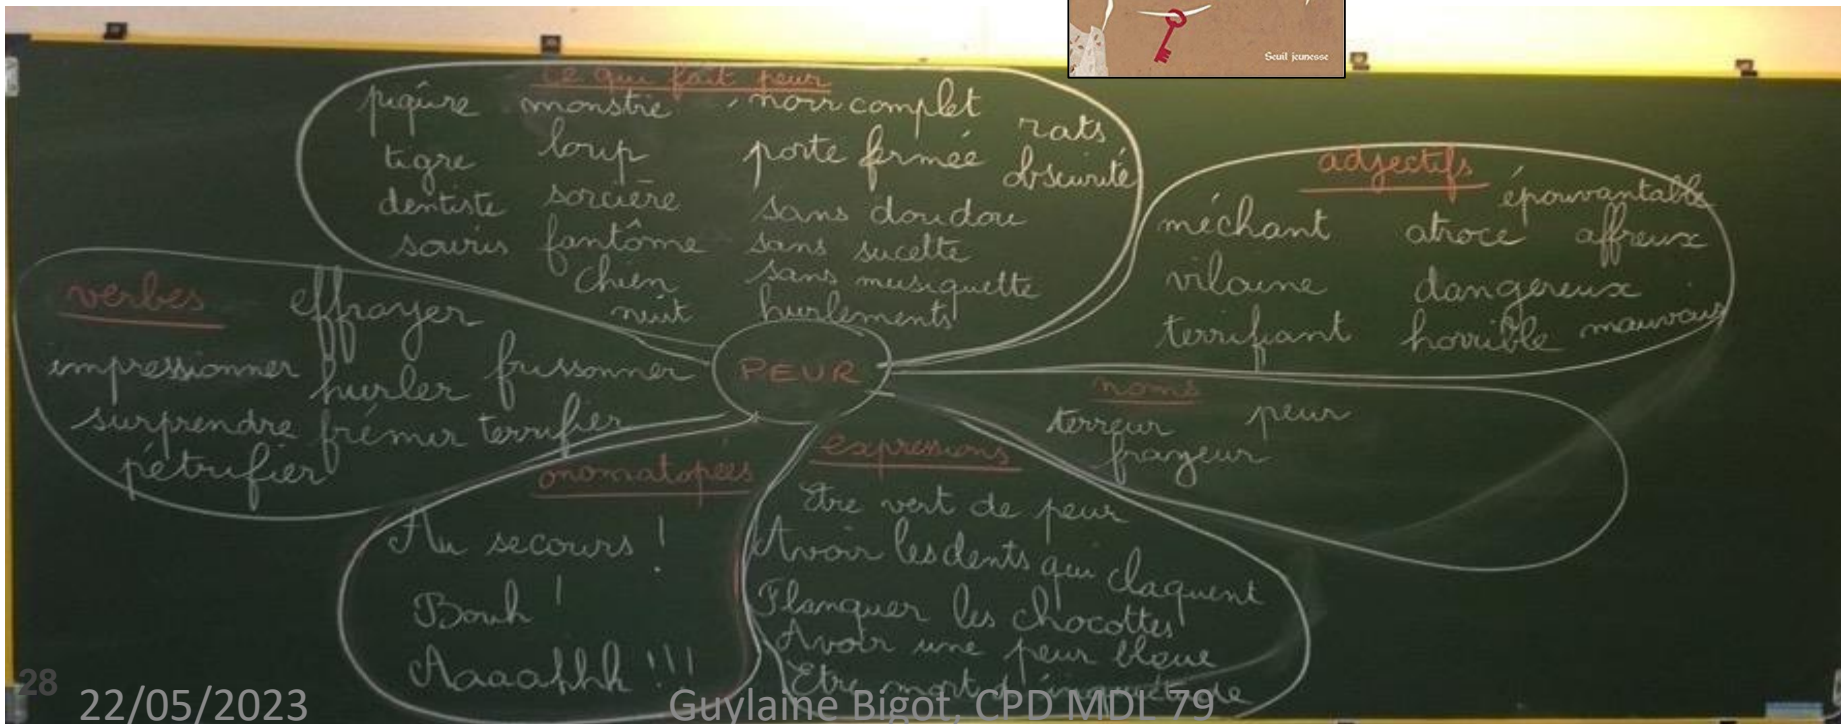 Seuil jeunesse
ce qui fait peur
piqûre monstre noir complet rats
tigre loup porte fermée obscurité
dentiste sorcière sans doudou
souris fantôme sans sucette
chien sans musiquette
nuit hurlements
adjectifs
épouvantable
méchant atroce affreux
vilaine dangereux
terrifiant horrible mauvais
verbes effrayer
impressionner hurler frissonner
surprendre frémir terrifier
pétrifier
PEUR
noms
terreur peur
frayeur
onomatopées
Au secours !
Bouh !
Aaaahhh !!!
expressions
Etre vert de peur
Avoir les dents qui claquent
Flanquer les chocottes
Avoir une peur bleue
Etre mort d'inquiétude
28
22/05/2023
Guylaine Bigot, CPD MDL 79